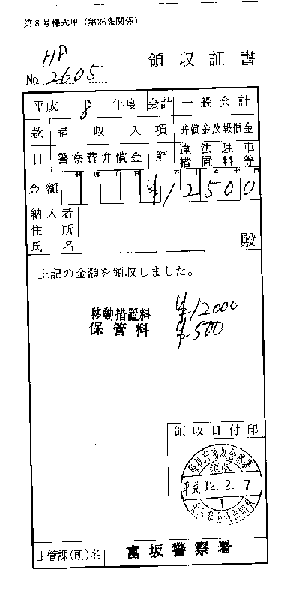 第8号様式甲（第26条関係）
HP
No. 2605
領収証書
平成 8 年度 会計 一般会計
款 諸収入 項 弁償金及報償金
目 警察費弁償金 節 違法駐車措置料等
金額 ¥12500
納入者
住所
氏名 殿
上記の金額を領収しました。
移動措置料 ¥12000
保管料 ¥500
領収日付印
富坂警察署